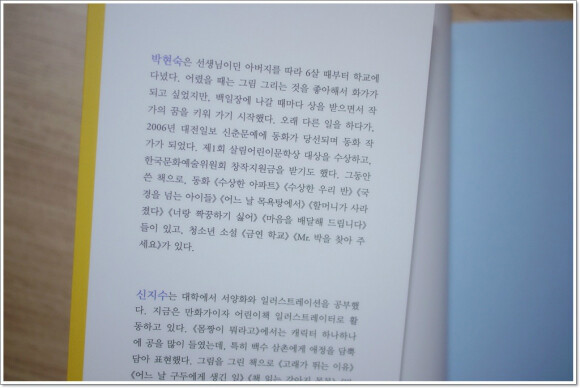 박현숙은 선생님이던 아버지를 따라 6살 때부터 학교에
다녔다. 어렸을 때는 그림 그리는 것을 좋아해서 화가가
되고 싶었지만, 백일장에 나갈 때마다 상을 받으면서 작
가의 꿈을 키워 가기 시작했다. 오래 다른 일을 하다가,
2006년 대전일보 신춘문예에 동화가 당선되며 동화 작
가가 되었다. 제1회 살림어린이문학상 대상을 수상하고,
한국문화예술위원회 창작지원금을 받기도 했다. 그동안
쓴 책으로, 동화 《수상한 아파트》 《수상한 우리 반》 《국
경을 넘는 아이들》 《어느 날 목욕탕에서》 《할머니가 사라
졌다》 《너랑 짝꿍하기 싫어》 《마음을 배달해 드립니다》
들이 있고, 청소년 소설 《금연 학교》 《Mr. 박을 찾아 주
세요》가 있다.
신지수는 대학에서 서양화와 일러스트레이션을 공부했
다. 지금은 만화가이자 어린이책 일러스트레이터로 활
동하고 있다. 《몸짱이 뭐라고》에서는 캐릭터 하나하나
에 공을 많이 들였는데, 특히 백수 삼촌에게 애정을 담뿍
담아 표현했다. 그림을 그린 책으로 《고래가 뛰는 이유》
《어느 날 구두에게 생긴 일》